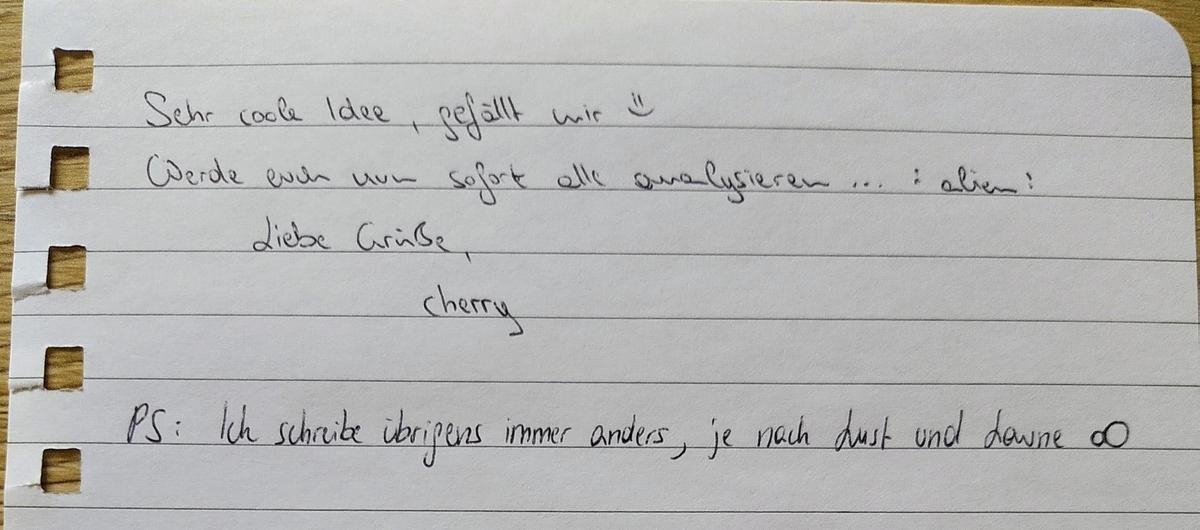 Sehr coole Idee, gefällt mir :)
Werde euch nun sofort alle analysieren ... :alien:
Liebe Grüße,
cherry
PS: Ich schreibe übrigens immer anders, je nach Lust und Laune ∞